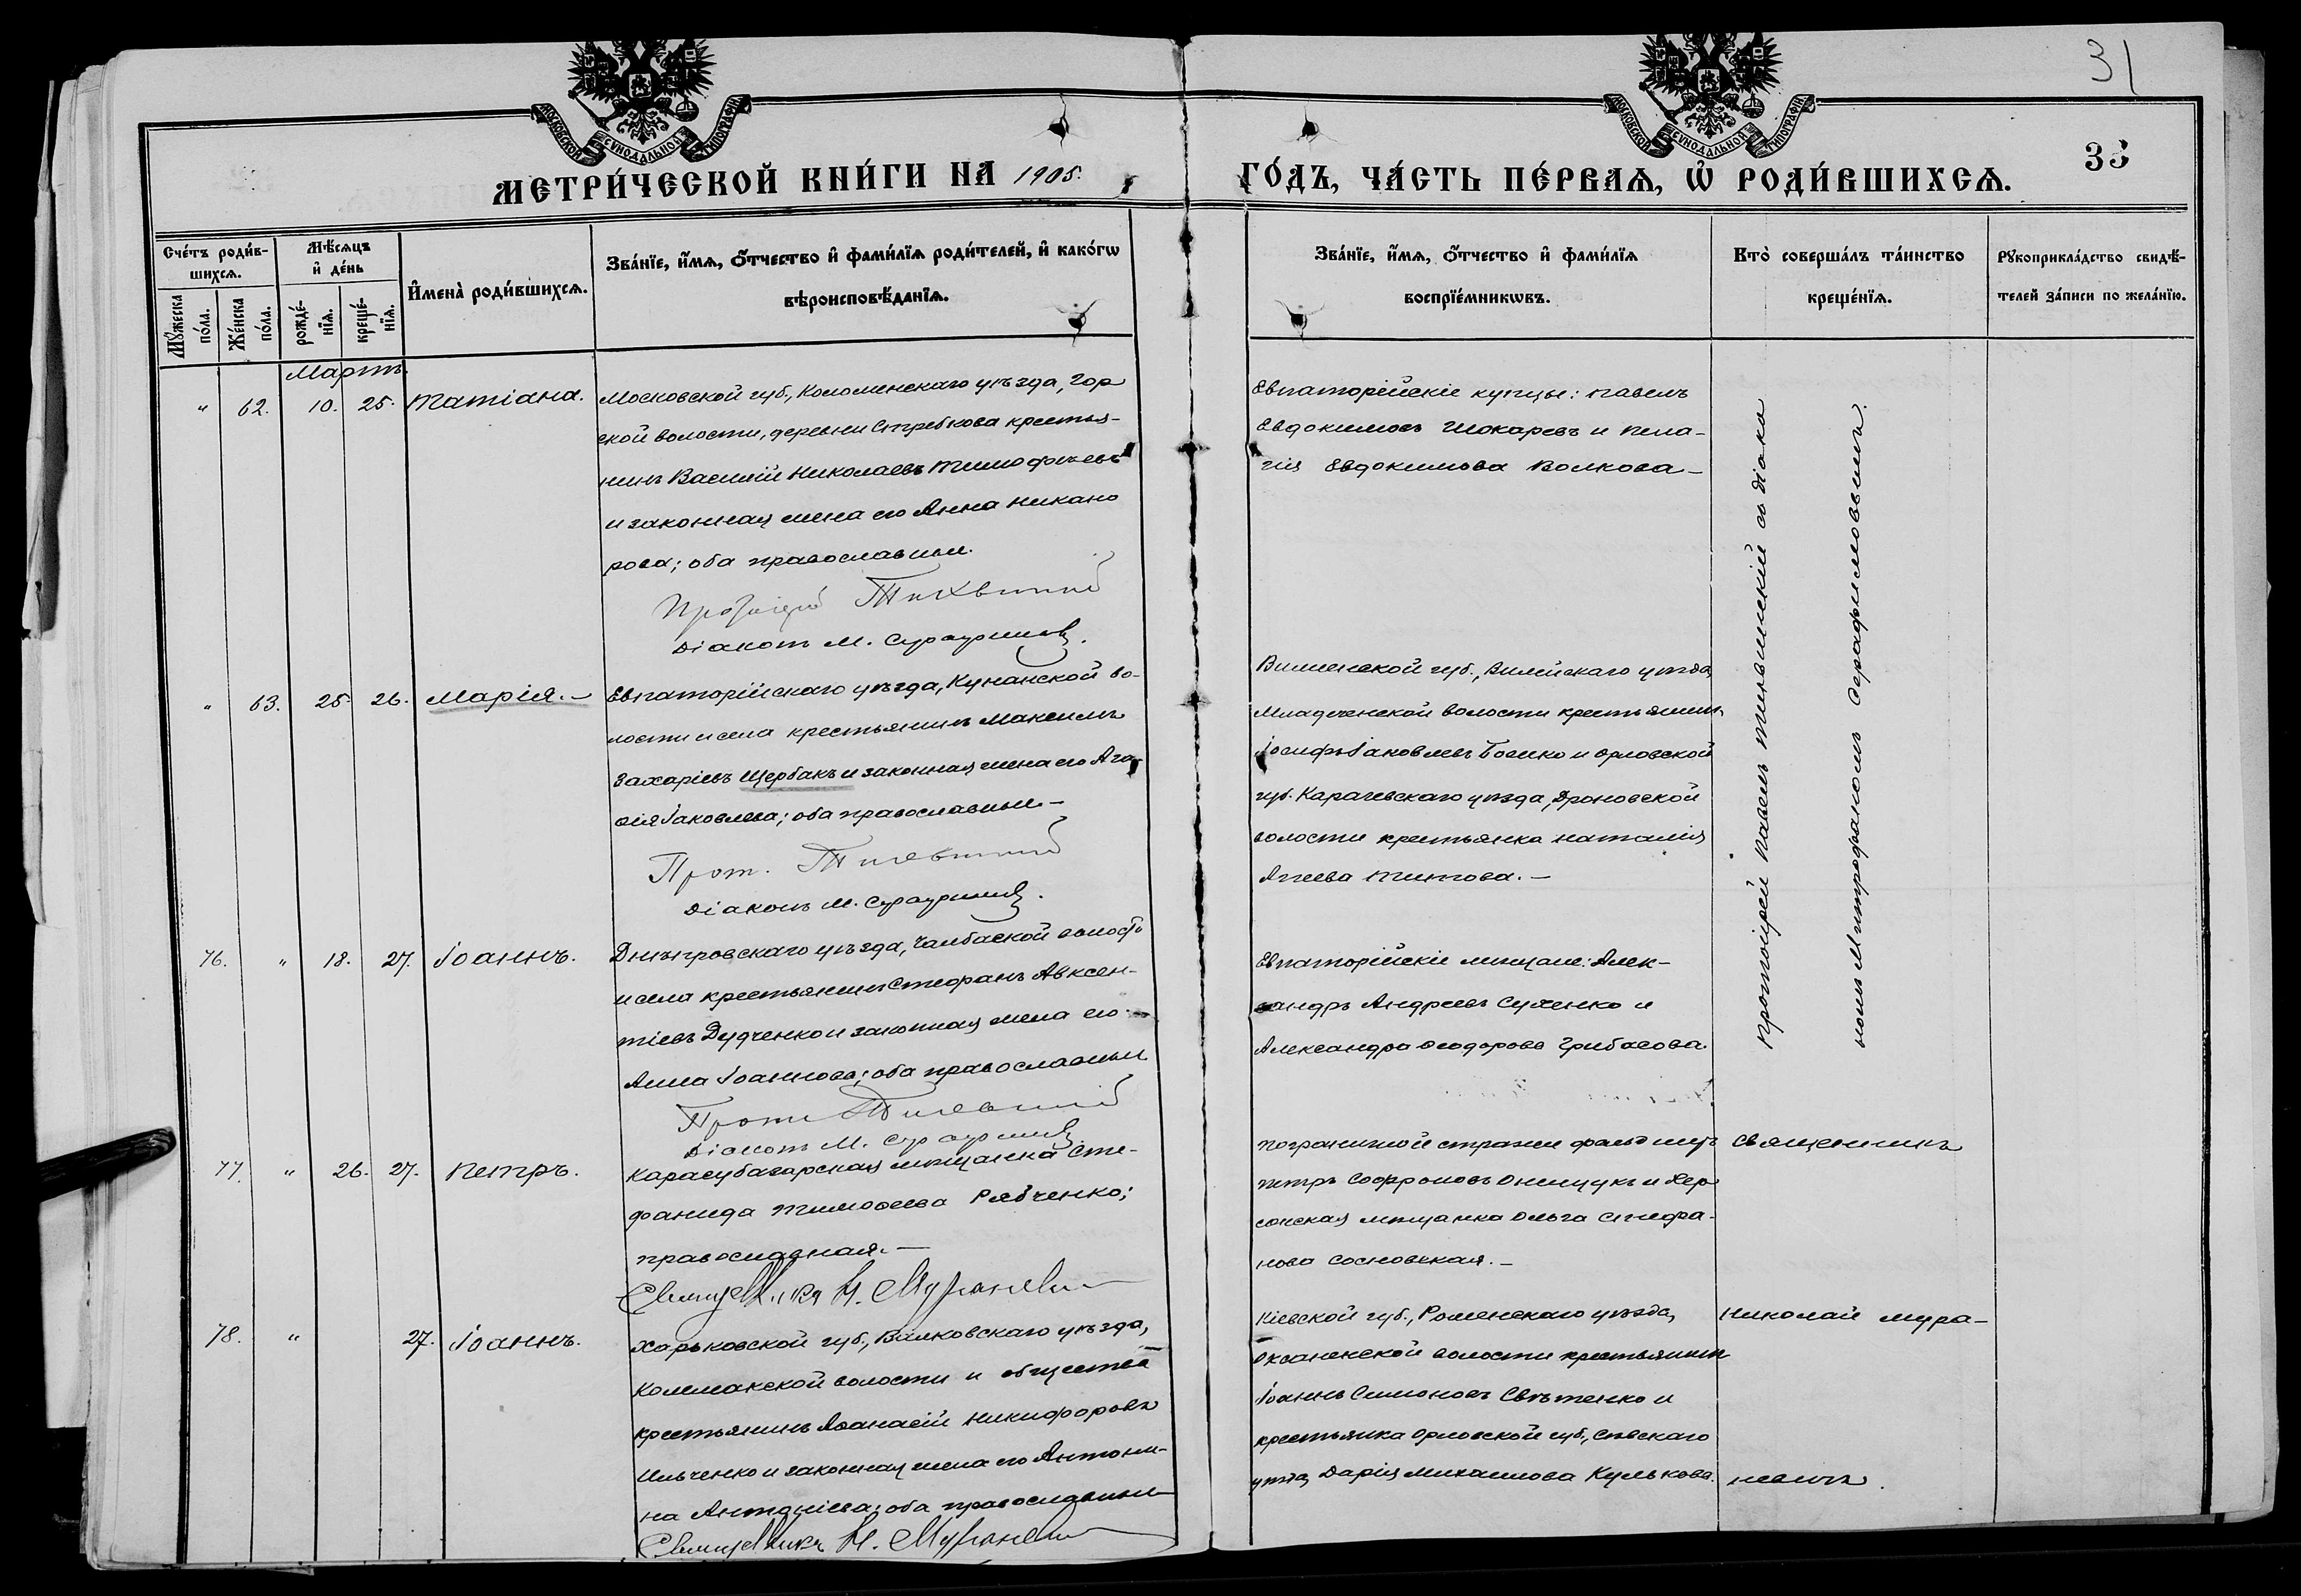 31
33
МОСКОВСКОЙ СѴНОДАЛЬНОЙ ТИПОГРАФІИ
МОСКОВСКОЙ СѴНОДАЛЬНОЙ ТИПОГРАФІИ
МЕТРИ́ЧЕСКОЙ КНИ́ГИ НА 1905.
ГО́ДЪ, ЧА́СТЬ ПЕ́РВАѦ, Ѽ РОДИ́ВШИХСѦ.
Сче́тъ роди́в-
шихсѧ.
Мꙋ́жеска
по́ла.
Же́нска
по́ла.
Мѣ́сѧцъ
и҆ де́нь
рожде́-
нїѧ.
креще́-
нїѧ.
И҆мена̀ роди́вшихсѧ.
Зва́нїе, и҆́мѧ, ѻ҆́тчество и҆ фами́лїѧ роди́телей, и҆ како́гѡ
вѣроисповѣ́данїѧ.
Зва́нїе, и҆́мѧ, ѻ҆́тчество и҆ фами́лїѧ
воспрїе́мникѡвъ.
Кто̀ соверша́лъ та́инство
креще́нїѧ.
Рꙋкоприкла́дство свидѣ́-
телей за́писи по жела́нїю.
Мартъ.
" 62. 10. 25. Татіана.
Московской губ., Коломенскаго уѣзда, Гор
ской волости, деревни Стребкова крестья-
нинъ Василій Николаевъ Тимофѣевъ
и законная жена его Анна Никано
рова; оба православные.
Протоіерей Тихвинскій
Діаконъ М.
Евпаторійскіе купцы: Павелъ
Евдокимовъ Шокаревъ и Пела-
гія Евдокимова Волкова-
" 63. 25. 26. Марія.-
Евпаторійскаго уѣзда, Кунанской во-
лости и села крестьянинъ Максимъ
Захаріевъ Щербакъ и законная жена его Ага-
ѳія Іаковлева; оба православные-
Прот. Тихвинскій
Діаконъ М.
Виленской губ., Вилейскаго уѣзда
Молодеченской волости крестьянинъ
Іосифъ Іаковлевъ и Орловской
губ. Карачевскаго уѣзда, Дроновской
волости крестьянка Наталія
Агеева Титова.-
76. " 18. 27. Іоаннъ.
Днѣпровскаго уѣзда, Чалбаской волости
и села крестьянинъ Стефанъ Авксен-
тіевъ Дудченко и законная жена его
Анна Іоаннова; оба православные
Прот Тихвинскій
Діаконъ М.
Евпаторійскіе мѣщане: Алек-
сандръ Андреевъ Сухенко и
Александра Ѳеодорова Грибасова.
Протоіерей Павелъ Тихвинскій съ діако
номъ Митрофаномъ Серафимовымъ.
77. " 26. 27. Петръ.
Карасубазарская мѣщанка Сте-
фанида Тимоѳеева Рябченко;
православная.-
Священникъ Н. Мураневичъ
Пограничной стражи
Петръ Софроновъ Онищукъ и Хер
сонская мѣщанка Ольга Стефа-
нова Сосновская.-
Священникъ
78. " 27. Іоаннъ.
Харьковской губ., Валковскаго уѣзда,
Коломакской волости и общества
крестьянинъ Аѳанасій Никифоровъ
Ильченко и законная жена его Антони-
на Антоніева; оба православные
Священникъ Н. Мураневичъ
Кіевской губ., Роменскаго уѣзда,
волости крестьянинъ
Іоаннъ Симоновъ Свѣтенко и
крестьянка Орловской губ.,
уѣзда Дарія Михаилова Кулькова.
Николай Мура-
невичъ.